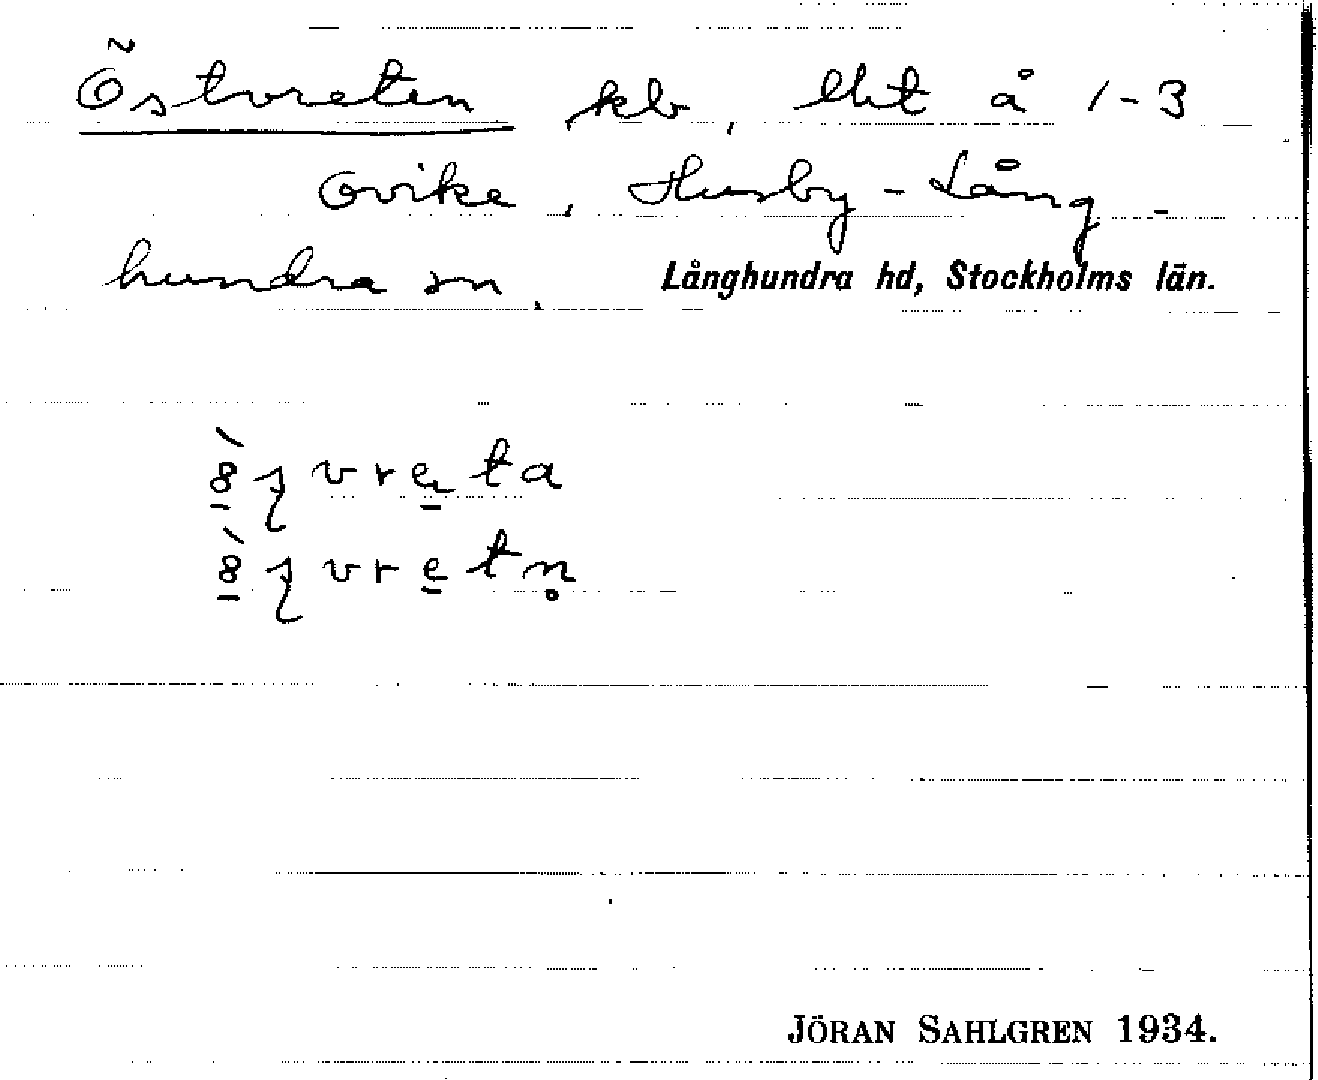 Östvreten kb, lht å 1-3
Ovike, Husby-Lång-
hundra sn. Långhundra hd, Stockholms län.
vreta
vretn̥
JÖRAN SAHLGREN 1934.